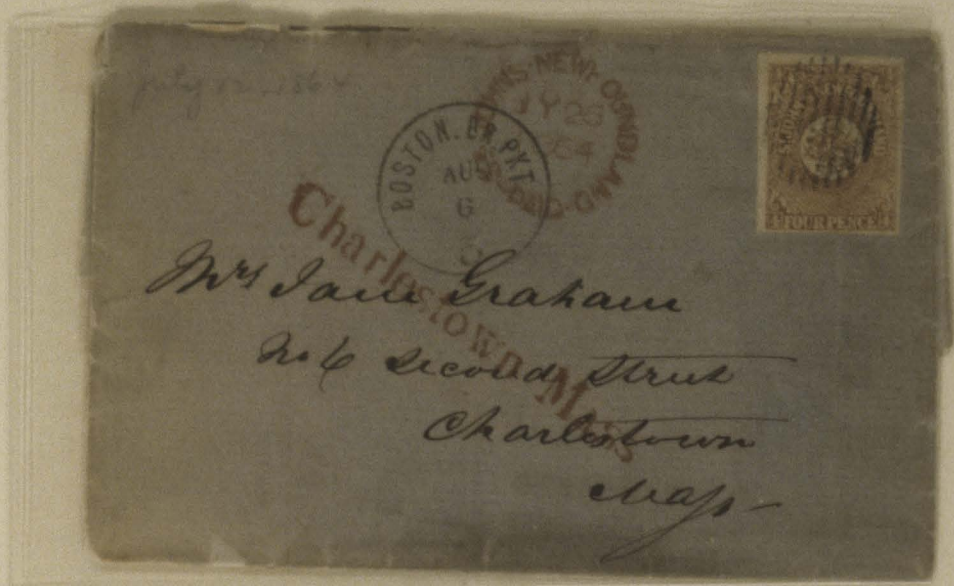 July 1864
NEWFOUNDLAND
JY 25
1864
BOSTON. BR. PKT
AUG
6
FOUR PENCE
Charlestown Mass
Mrs Jane Graham
No 6 Second Street
Charlestown
Mass